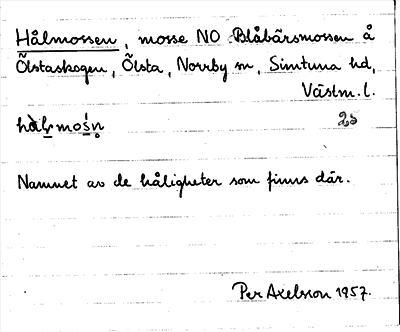 Hålmossen, mosse NO Blåbärsmossen å
Õlstaskogen, Õlsta, Norrby sn, Simtuna hd,
Västm. l.
25
Namnet av de håligheter som finns där.
Per Axelsson 1957.